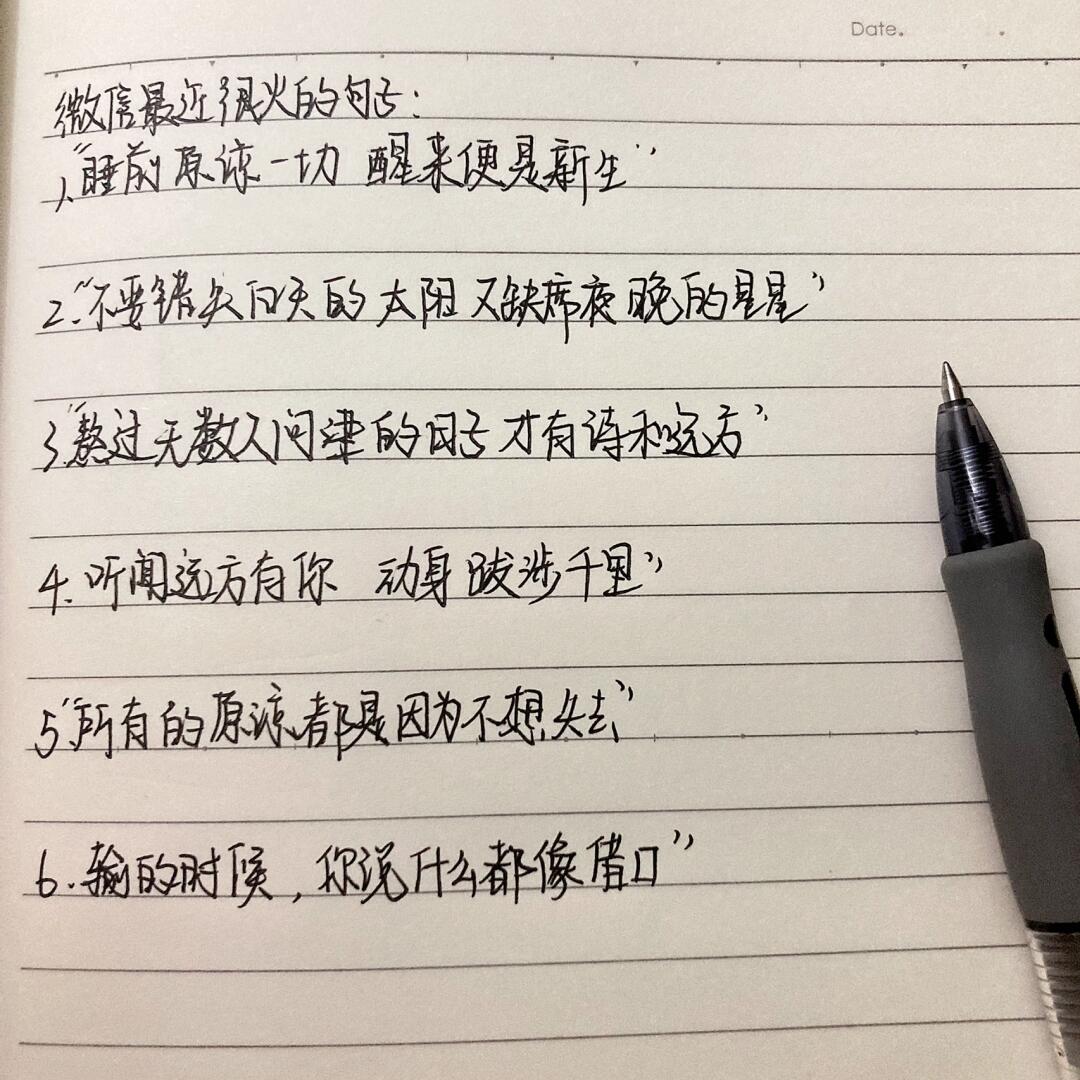 Date.
微信最近很火的句子:
1、“睡前原谅一切 醒来便是新生”
2.“不要错失白天的太阳 又缺席夜晚的星星”
3“熬过无数人问津的日子 才有诗和远方”
4.听闻远方有你 动身跋涉千里”
5“所有的原谅都是因为不想失去”
6.输的时候,你说什么都像借口”